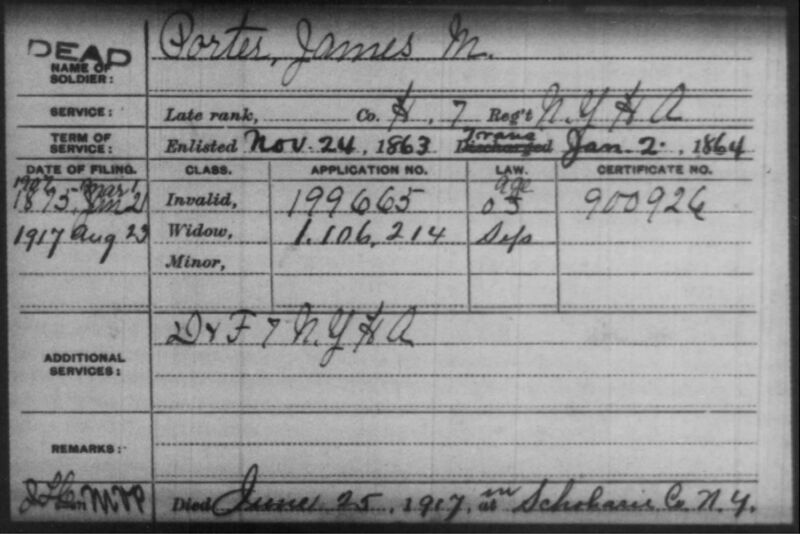 DEAD
NAME OF SOLDIER: Porter, James M.
SERVICE: Late rank, Co. H. 7 Reg't N. Y H A
TERM OF SERVICE: Enlisted Nov. 24, 1863 Trans Discharged Jan. 2., 1864
DATE OF FILING. CLASS. APPLICATION NO. LAW. CERTIFICATE NO.
1907 - Mar 1 age
1875, Jan 21 Invalid, 199665 900926
1917 Aug 23 Widow, 1.106,214
Minor,
ADDITIONAL SERVICES: D & F 7 N. Y H A
REMARKS:
Died June 25, 1917, in at Schoharie Co. N. Y.